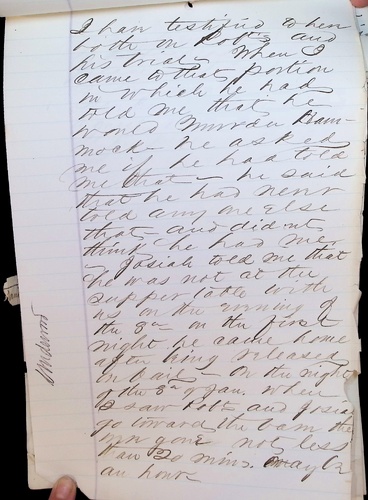 I have testified to here
both on Potts and
his trial. When I
came to that portion
in which he had
told me that he
would murder Ham-
mock – he asked
me if he had told
me that – he said
that he had never
told any one else
that – and did not
think he had me.
– Josiah told me that
he was not at the
supper table with
us on the evening of
the 3rd – on the first
night he came home
after being released
on bail – On the night
of the 3rd of Jan. when
I saw Potts and Josiah
go toward the barn they
were gone not less
than 20 mins. maybe
an hour
Underwood